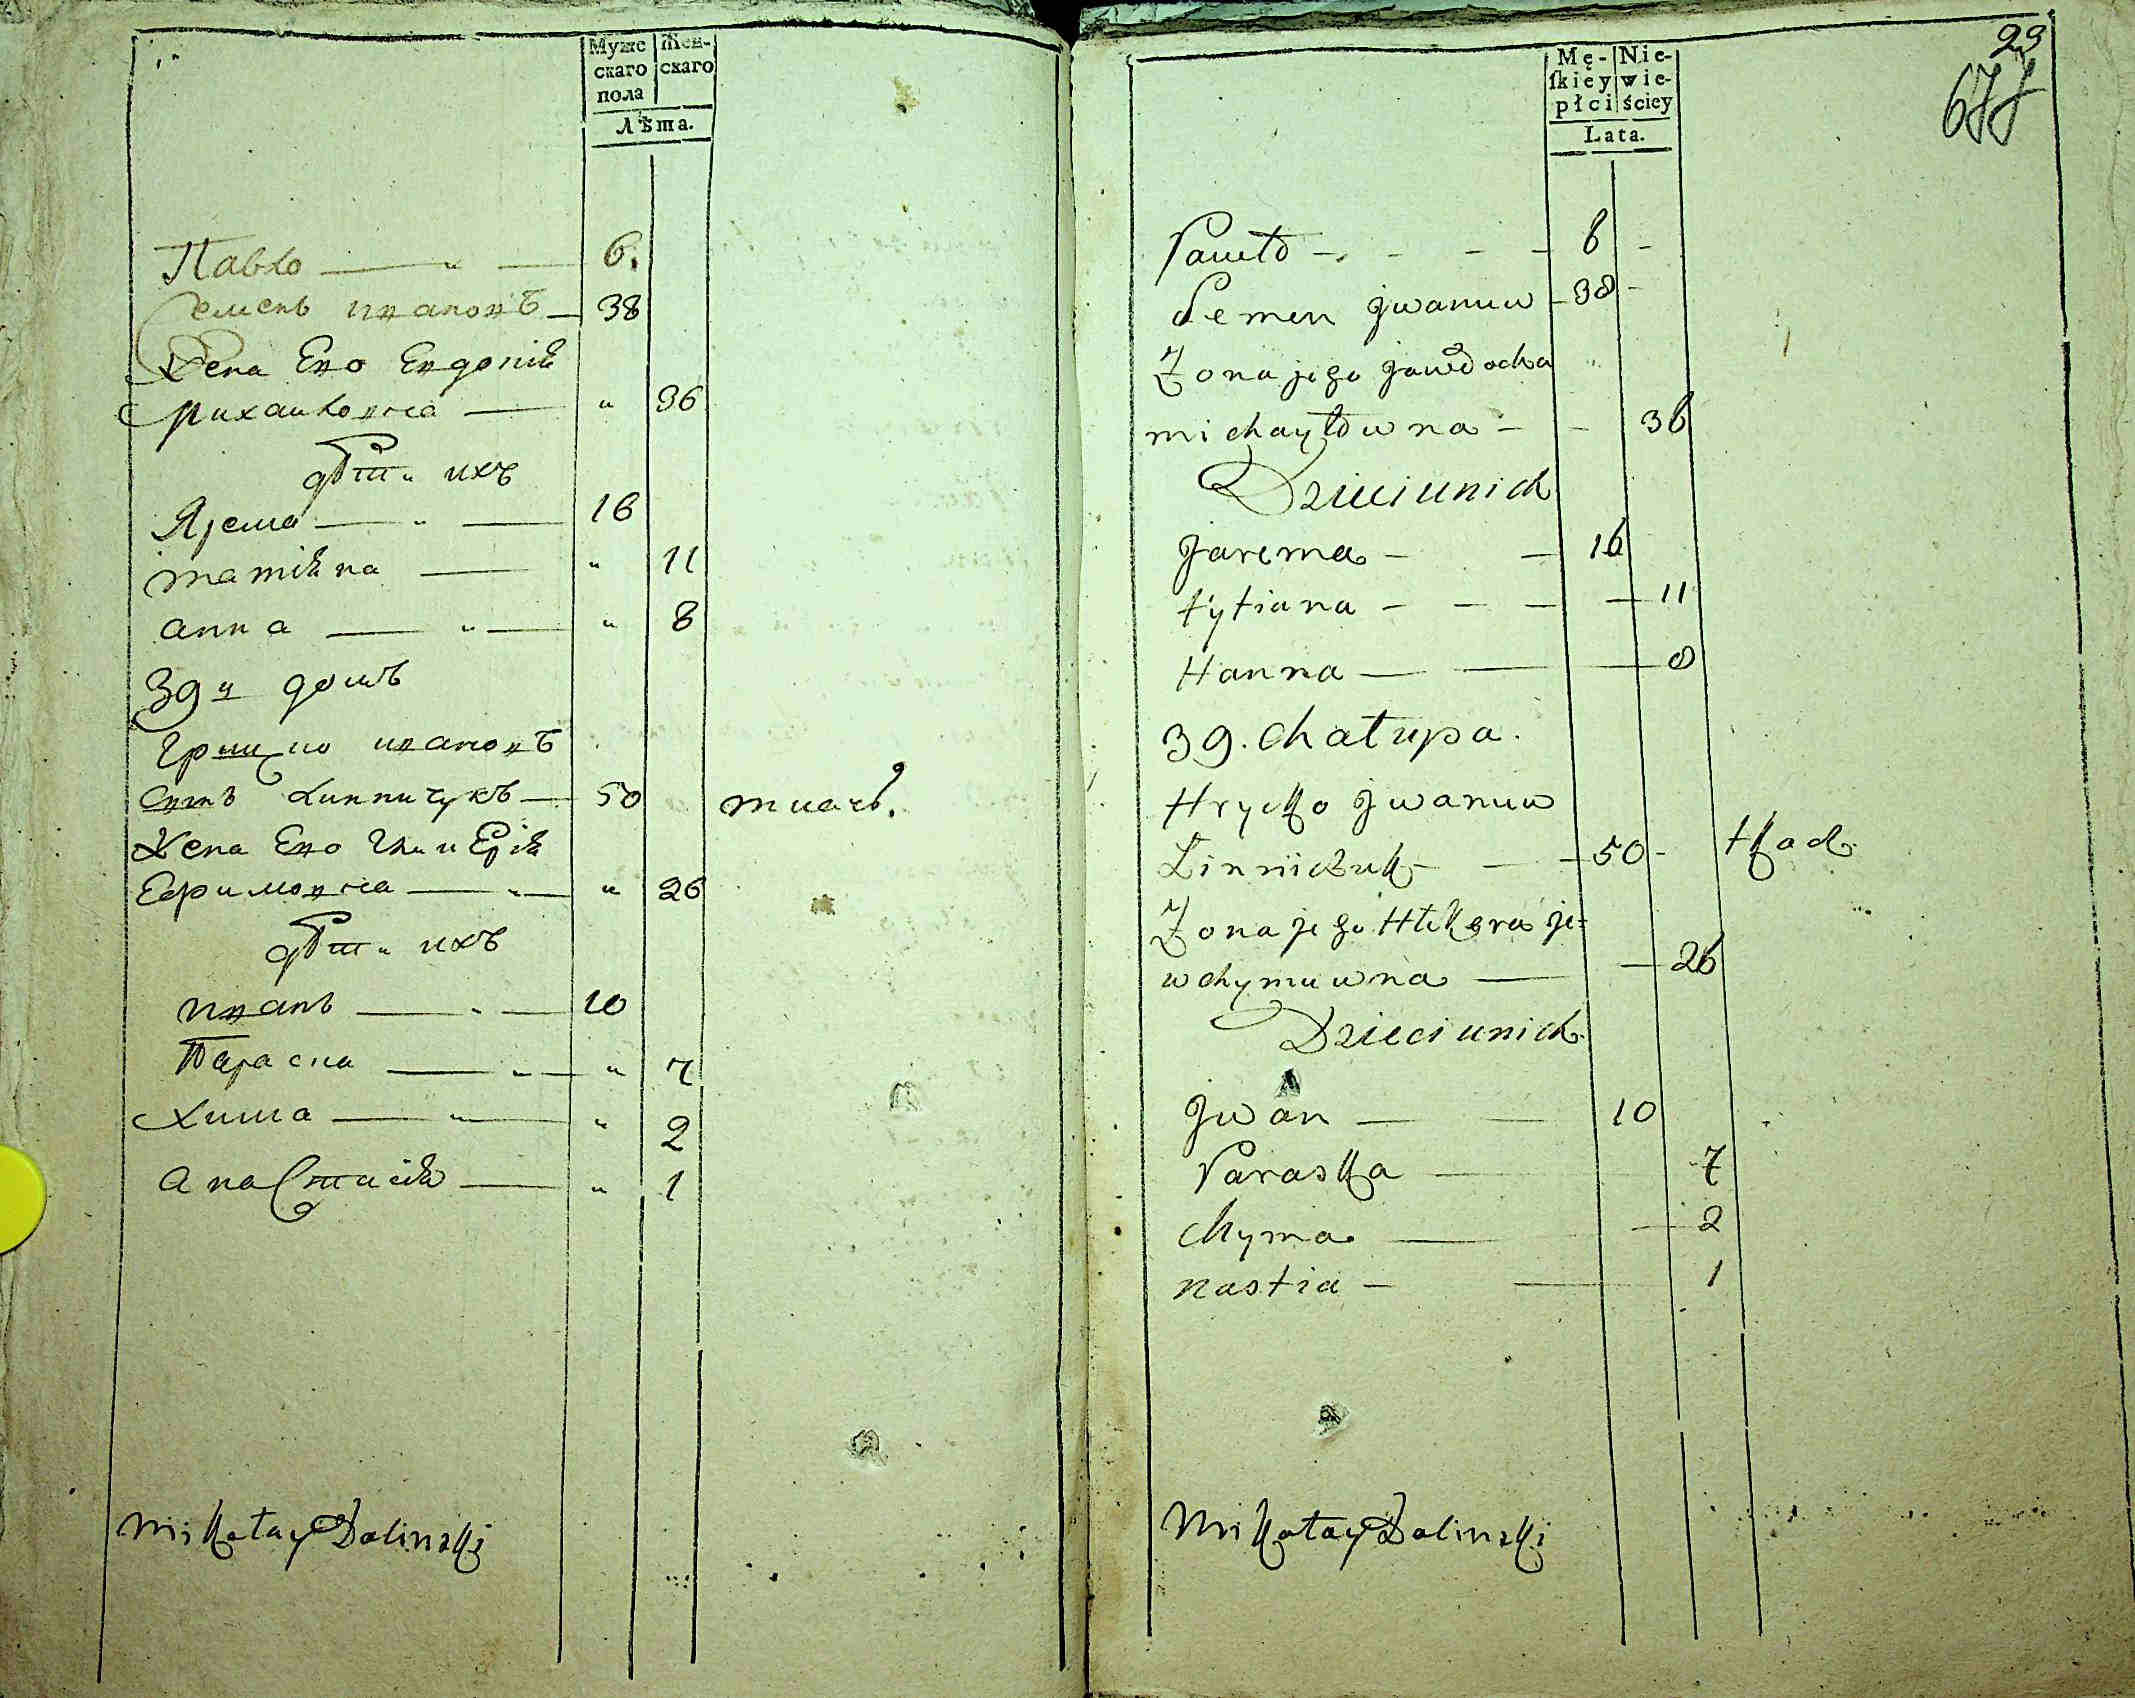 Мужс Жен-
скаго скаго
пола
Лѣта.
Павло 6.
Семенъ ивановъ 38
Жена Его Евдокія
Михаиловна " 36
дѣти ихъ
Ярема 16
татіяна " 11
анна " 8
39й домъ
Грицко ивановъ
сынъ Линничукъ 50 ткачъ.
Жена Его
Ефимовна " 26
дѣти ихъ
иванъ 10
Параска " 7
Хима " 2
анастасія " 1
Mikołay Dolinski
29
677
Mę- Nie-
ſkiey wie-
płci ściey
Lata.
Pawło 6
Semen Jwanuw 38
Żona jego Jawdocha
michayłowna 36
Dzieci unich
Jarema 16
tytiana 11
Hanna 8
39. Chałupa.
Hrycko Jwanuw
Linniczuk 50 tkach
Żona jego Hlikera je-
wchymuwna 26
Dzieci unich.
Jwan 10
Paraska 7
Chyma 2
nastia 1
Mikołay Dolinski